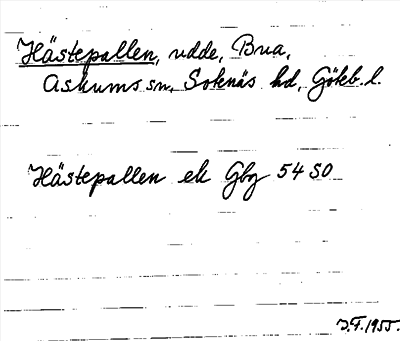 Hästepallen, udde, Bua,
Askums sn, Sotenäs hd, Göteb. l.
Hästepallen ek Gbg 54 SO
J.F. 1955.